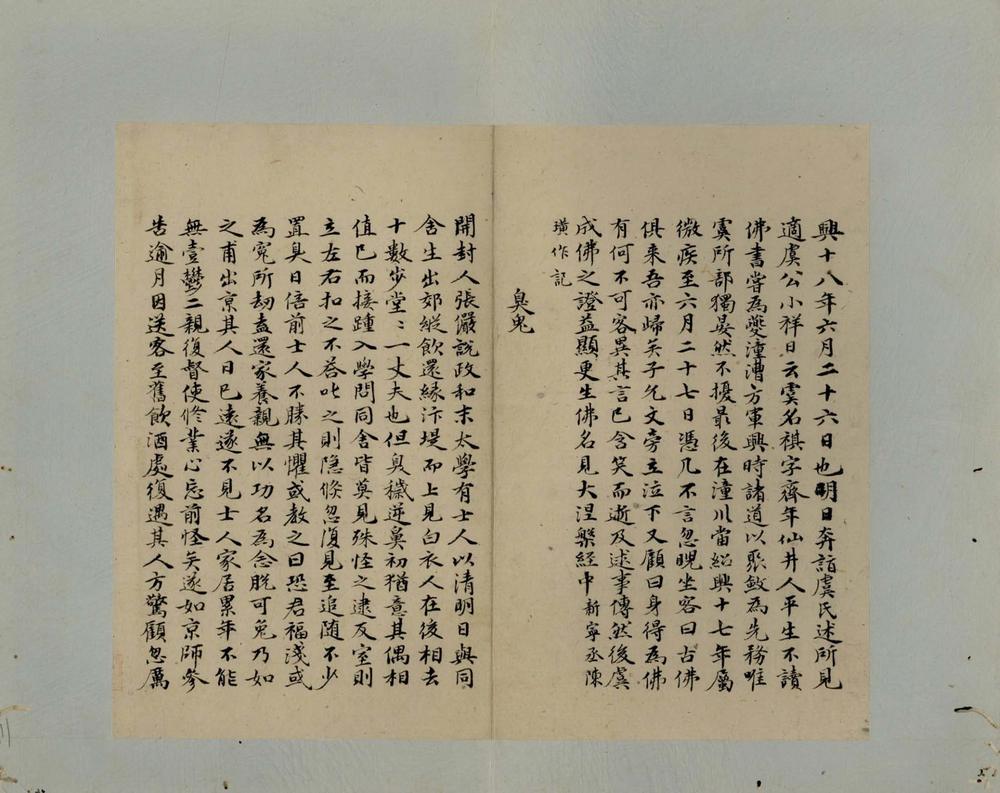 興十八年六月二十六日也明日奔詣虞氏述所見
適虞公小祥日云虞名祺字齊年仙井人平生不讀
佛書嘗為夔潼漕方軍興時諸道以聚斂為先務唯
虞所部獨晏然不擾最後在潼川當紹興十七年屬
微疾至六月二十七日憑几不言忽睨坐客曰古佛
俱来吾亦歸矣子允文旁立泣下又顧曰身得為佛
有何不可容異其言已含笑而逝及述事傳然後虞
成佛之證益顯更生佛名見大涅槃經中新寧丞陳
璜作記
臭鬼
開封人張儼說政和末太學有士人以清明日與同
舍生出郊縱飲還緣汴堤而上見白衣人在後相去
十數步堂〻一丈夫也但臭穢逆鼻初猶意其偶相
值已而接踵入學問同舍皆莫見殊怪之逮反室則
立左右扣之不荅叱之則隱倏忽復見至追隨不少
置臭日倍前士人不勝其懼或教之曰恐君福淺或
為寃所劫盍還家養親無以功名為念脫可免乃如
之甫出京其人日已遠遂不見士人家居累年不能
無壹鬱二親復督使修業心忘前怪矣遂如京師參
告逾月因送客至舊飲酒處復遇其人方驚顧忽厲